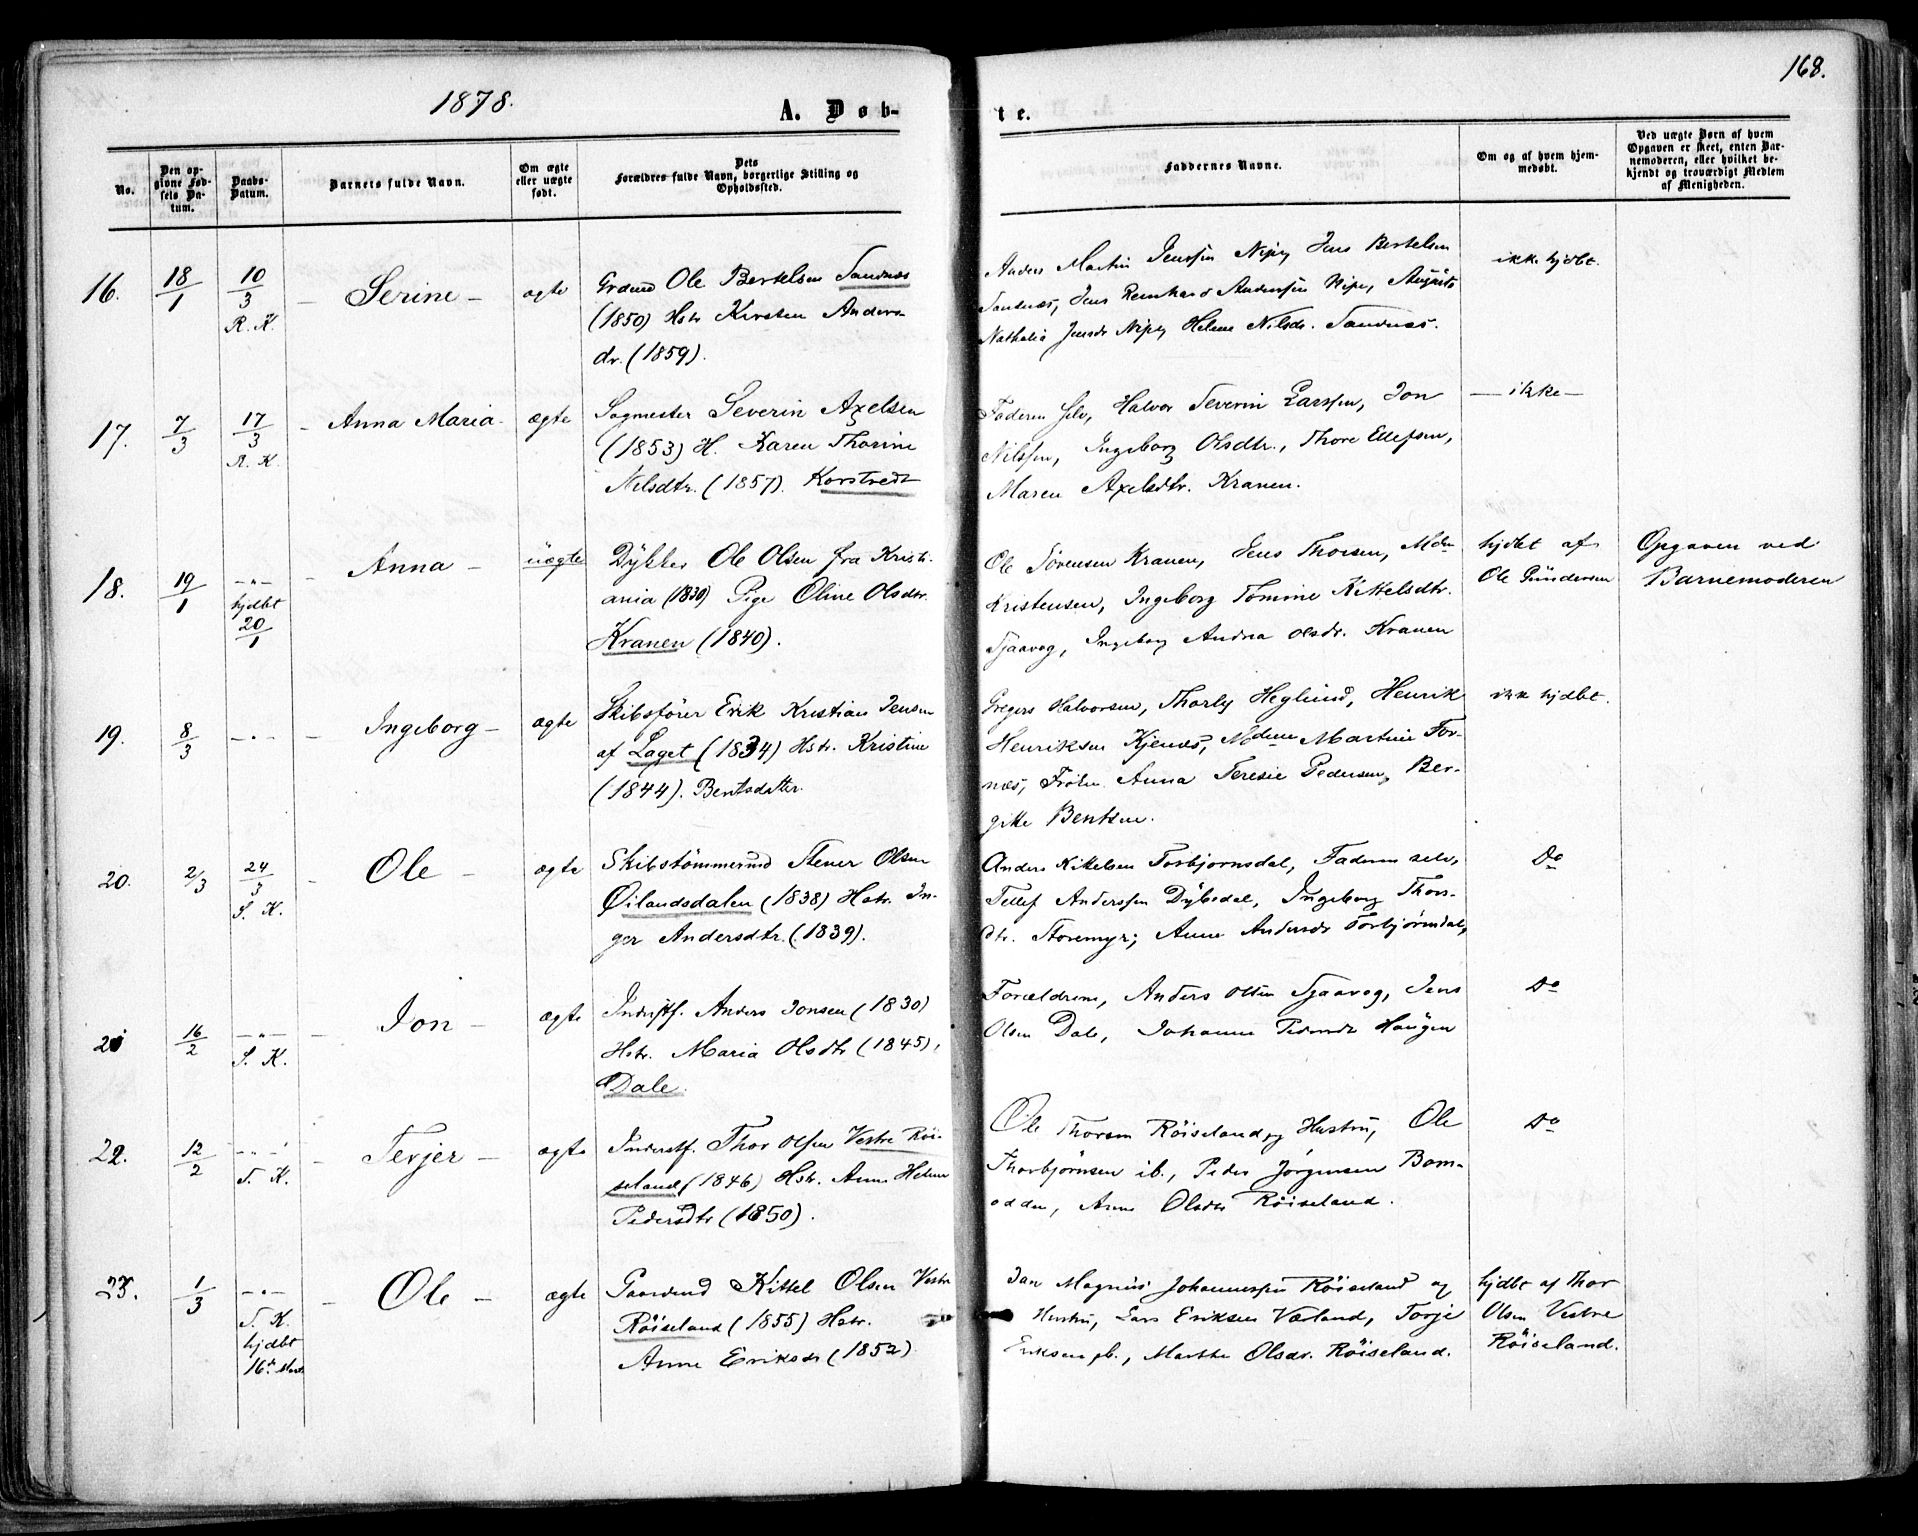 1878.
168.
A. Døb-
te.
No.
Den op-
givne Fød-
sels Da-
tum.
Daabs-
Datum.
Barnets fulde Navn.
Om ægte
eller uægte
født.
Dets
Forældres fulde Navn, borgerlige Stilling og
Opholdssted.
Faddernes Navne.
Om og af hvem hjem-
medøbt.
Ved uægte Børn af hvem
Opgaven er skeet, enten Bar-
nemoderen, eller hvilket be-
kjendt og troværdigt Medlem
af Menigheden.
16.
18/1
10/3
R. K.
Serine
ægte
Grdmd Ole Bertelsen Sandnæs
(1850) Hstr Kirsten Anders-
dr. (1859).
Anders Martin Jenssen Nipe, Jens Bertelsen
Sandnæs, Jens Reinhard Anderssen Nipe, Augusta
Nathalia Jensdr Nipe, Helene Nilsdr. Sandnæs.
ikke hjdbt.
17.
7/3
17/3
R. K.
Anna Maria
ægte
Sagmester Severin Axelsen
(1853) H. Karen Thorine
Nilsdtr. (1857). Korstvedt
Faderen selv, Halvor Severin Larssen, Jon
Nilssen, Ingeborg Olsdtr., Thore Ellefsen,
Maren Axelsdtr. Kranen.
— ikke —
18.
19/1
— " —
hjdbt
20/1
Anna
uægte
Dykker Ole Olsen fra Kristi-
ania (1830) Pige Oline Olsdtr.
Kranen (1840).
Ole Sørensen Kranen, Jens Thorsen,
Kristensen, Ingeborg Tomine Kittelsdtr.
Sjaavaag, Ingeborg Andrea Olsdr. Kranen
hjdbt af
Ole Gundersen
Opgaven ved
Barnemoderen
19.
8/3
— " —
Ingeborg
ægte
Skibsfører Erik Kristian Jensen
af Laget (1834) Hstr. Kristine
(1844). Bentsdatter.
Gregers Halvorsen, Thorly Heglund, Henrik
Henriksen Kjenes, Martine For-
næs, Frøken Anna Teresie Pedersen, Ber-
gitte Bentsen.
ikk hjdbt.
20.
2/3
24/3
S. K.
Ole
ægte
Skibstømmermd Stener Olsen
Øilandsdalen (1838) Hstr. In-
ger Andersdtr. (1839).
Anders Kittelsen Torbjørnsdal, Faderen selv,
Tellef Anderssen Dybsdal, Ingeborg Thors-
dtr. Storemyr, Anne Andersdr Torbjørnsdal,
Do
21
16/2
— " —
S. K.
Jon
ægte
Inderstf. Anders Jonsen (1830)
Hstr. Maria Olsdtr (1845),
Dale.
Forældrene, Anders Olsen Sjaavaag, Jens
Olsen Dale, Johanne Pedersdr Haugen
Do
22.
12/2
— " —
S. K.
Terjer
ægte
Inderstf. Thor Olsen Vestre Röi-
seland (1846) Hstr. Anne Helene
Pedersdtr (1850).
Ole Thorsen Röiseland og Hustru, Ole
Thorbjörnsen ib., Peder Jørgensen Bom-
odden, Anne Olsdtr Röiseland.
Do
23.
1/3
— " —
S. K.
hjdbt
16de Marts
Ole
ægte
Gaardmd Kittel Olsen Vestre
Röiseland (1855) Hstr.
Anne Eriksdr (1852)
Jan Magnus Johannessen Röiseland og
Hustru, Lars Eriksen Værland, Torje
Eriksen ib., Marthe Olsdr. Röiseland.
hjdbt af Thor
Olsen Vestre
Röiseland.